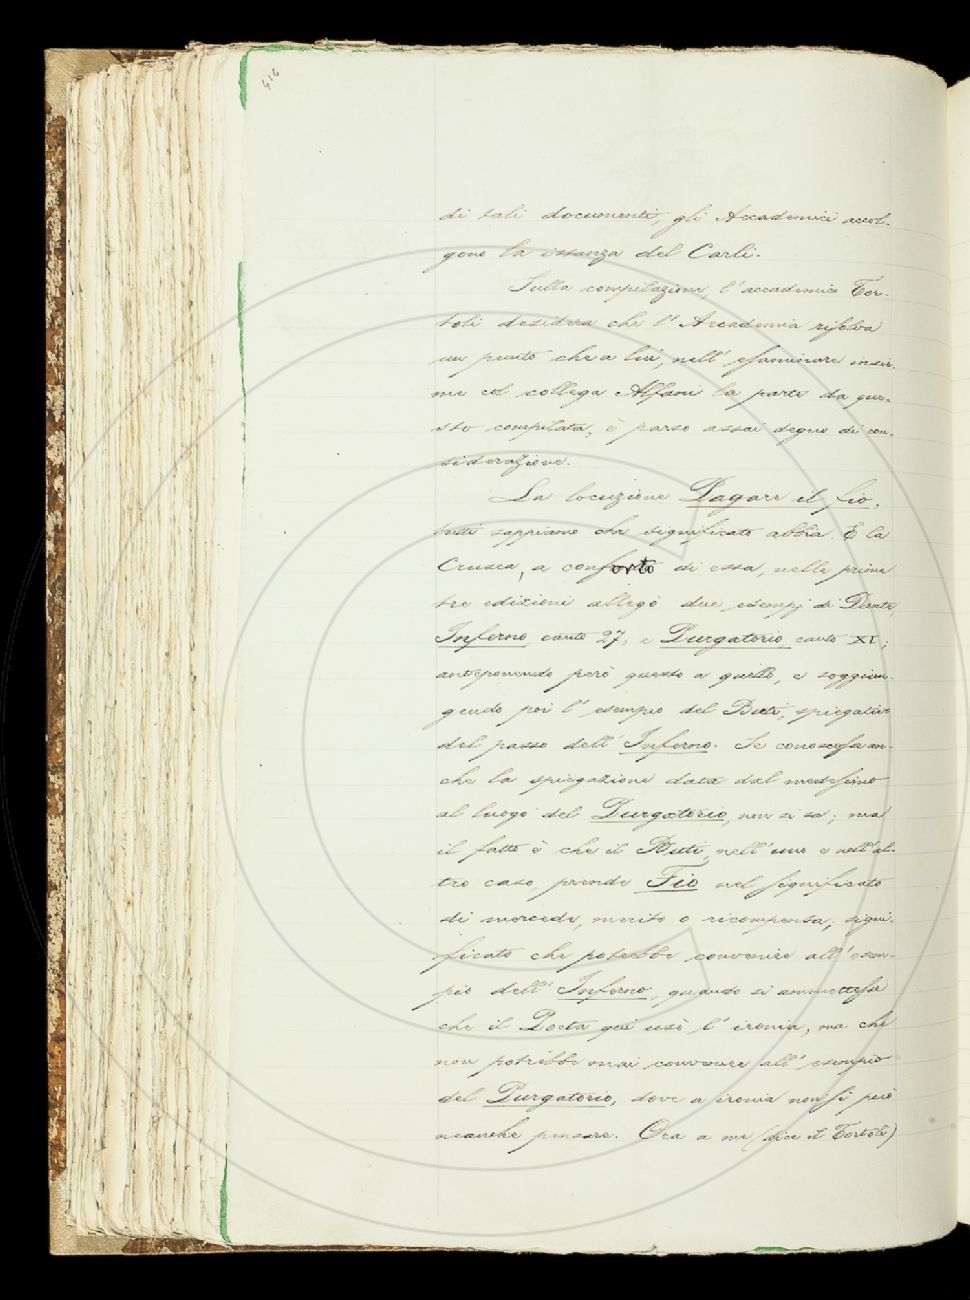 416
di tali documenti, gli Accademici accol-
gono la istanza del Carli.
Sulla compilazione, l'accademico Tor-
toli desidera che l'Accademia risolva
un punto che a lui, nell'esaminare insie-
me col collega Alfani la parte da que-
sto compilata, è parso assai degno di con-
siderazione.
La locuzione Pagare il fio,
tutti sappiamo che significato abbia. E la
Crusca, a conforto di essa, nelle prime
tre edizioni allegò due esempj di Dante,
Inferno, canto 27, e Purgatorio, canto XI;
anteponendo però questo a quello, e soggiun-
gendo poi l'esempio del Buti, spiegativo
del passo dell'Inferno. Se conoscesse an-
che la spiegazione data dal medesimo
al luogo del Purgatorio, non si sa; ma
il fatto è che il Buti, nell'uno e nell'al-
tro caso, prende Fio nel significato
di mercede, merito o ricompensa; signi-
ficato che potrebbe convenire all'esem-
pio dell'Inferno, quando si ammettesse
che il Poeta qui usò l'ironia, ma che
non potrebbe mai convenire all'esempio
del Purgatorio, dove a ironia non si può
neanche pensare. Ora a me (dice il Tortoli)